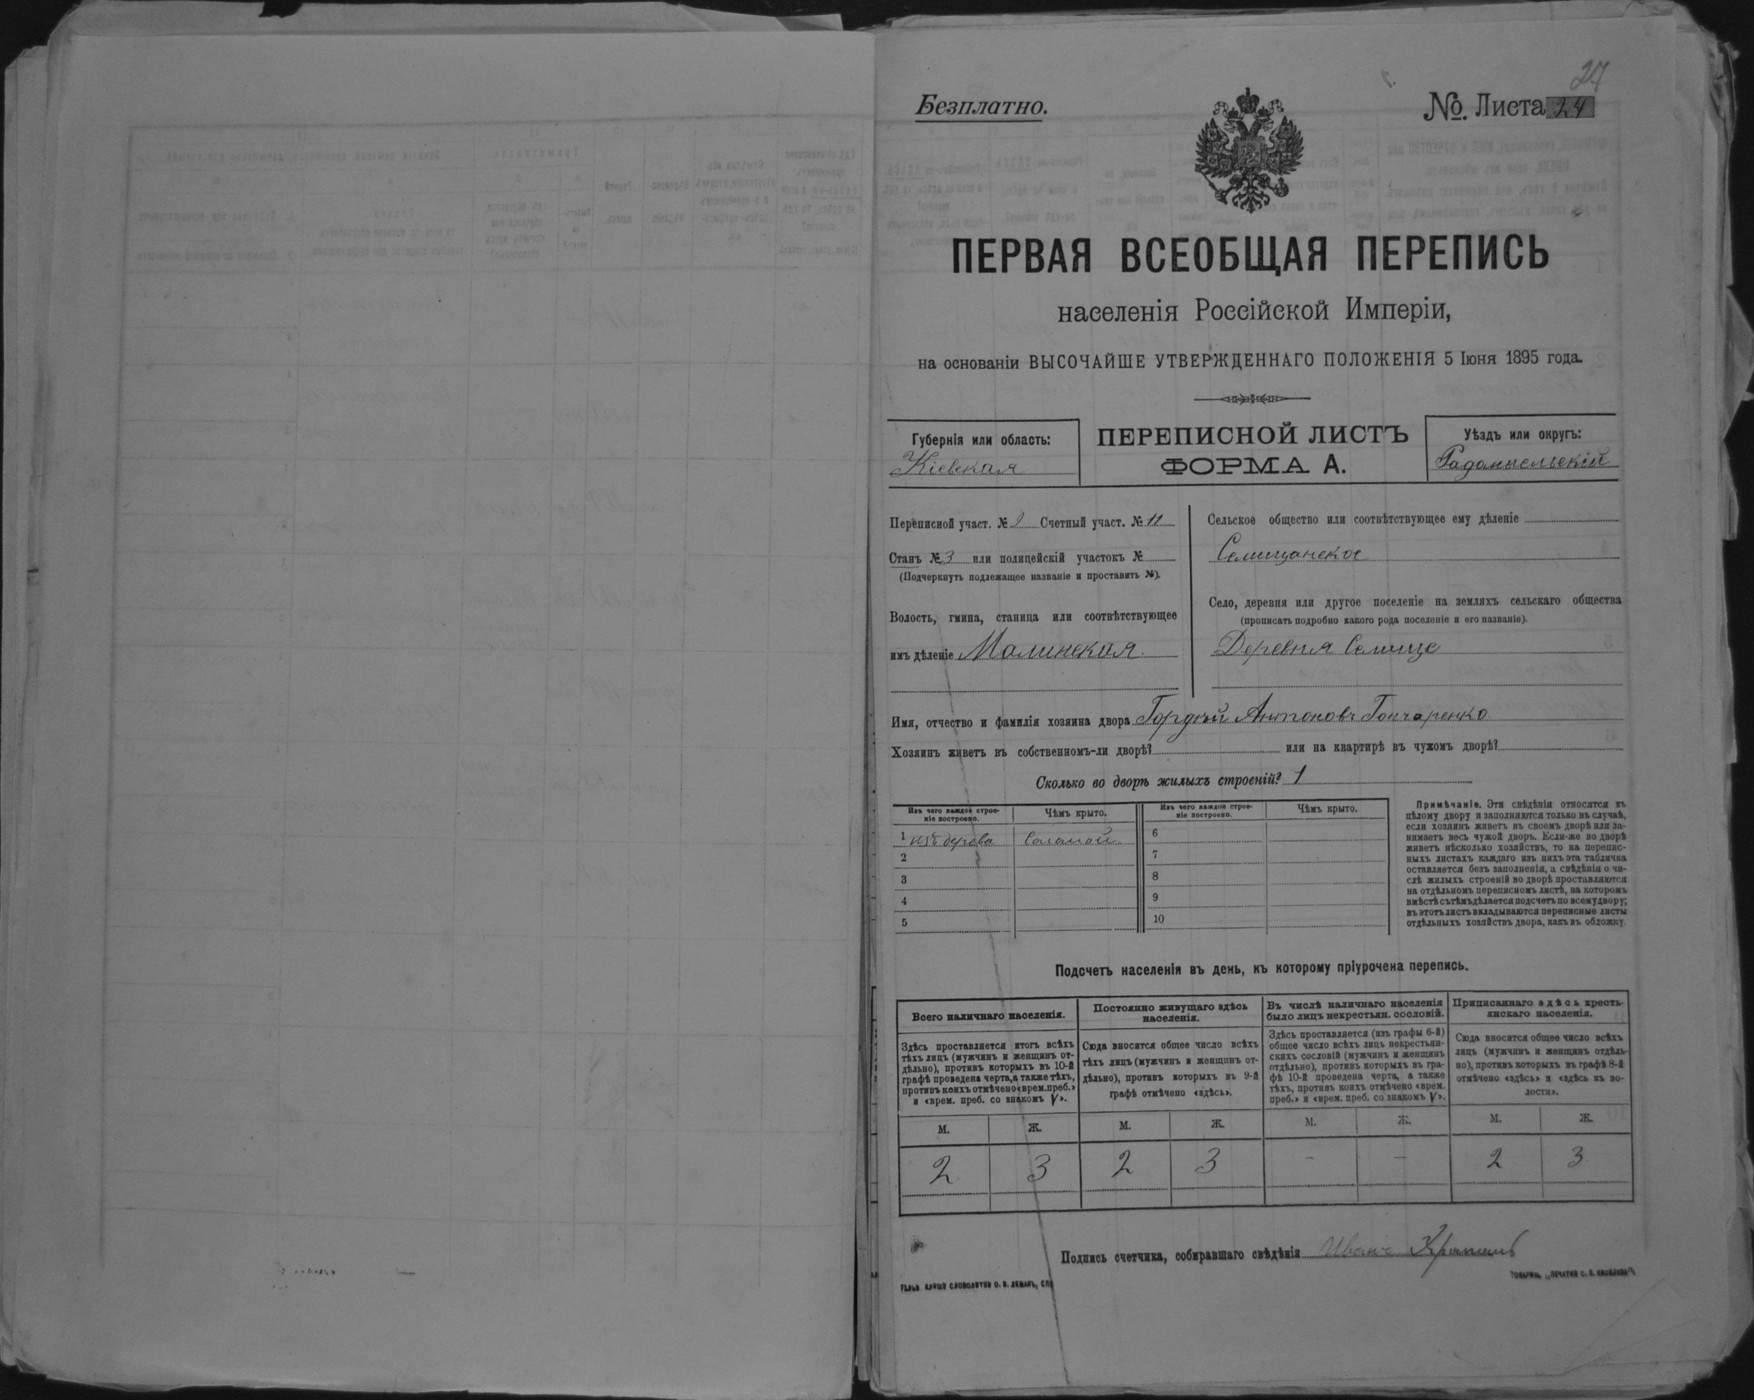 27
Безплатно.
№. Листа 24
ПЕРВАЯ ВСЕОБЩАЯ ПЕРЕПИСЬ
населенія Россійской Имперіи,
на основаніи ВЫСОЧАЙШЕ УТВЕРЖДЕННАГО ПОЛОЖЕНІЯ 5 Іюня 1895 года.
Губернія или область:
Кіевская
ПЕРЕПИСНОЙ ЛИСТЪ
ФОРМА А.
Уѣздъ или округъ:
Радомысльскій
Переписной участ. № 9 Счетный участ. № 11
Станъ № 3 или полицейскій участокъ №
(Подчеркнуть подлежащее названіе и проставить №).
Волость, гмина, станица или соотвѣтствующее
имъ дѣленіе Малинская
Сельское общество или соотвѣтствующее ему дѣленіе
Селищанское
Село, деревня или другое поселеніе на земляхъ сельскаго общества
(прописать подробно какого рода поселеніе и его названіе).
Деревня Селище
Имя, отчество и фамилія хозяина двора Гордѣй Антоновъ Гончаренко
Хозяинъ живетъ въ собственномъ-ли дворѣ? или на квартирѣ въ чужомъ дворѣ?
Сколько во дворѣ жилыхъ строеній? 1
Изъ чего каждое строеніе построено. Чѣмъ крыто. Изъ чего каждое строеніе построено. Чѣмъ крыто.
1 изъ дерева соломой 6
2 7
3 8
4 9
5 10
Примѣчаніе. Эти свѣдѣнія относятся къ
цѣлому двору и заполняются только въ случаѣ,
если хозяинъ живетъ въ своемъ дворѣ или за-
нимаетъ весь чужой дворъ. Если-же во дворѣ
живетъ нѣсколько хозяйствъ, то на перепис-
ныхъ листахъ каждаго изъ нихъ эта табличка
оставляется безъ заполненія, а свѣдѣнія о чи-
слѣ жилыхъ строеній во дворѣ проставляются
на отдѣльномъ переписномъ листѣ, на которомъ
вмѣстѣ съ тѣмъ дѣлается подсчетъ по всему двору;
въ этотъ листъ вкладываются переписные листы
отдѣльныхъ хозяйствъ двора, какъ въ обложку.
Подсчетъ населенія въ день, къ которому пріурочена перепись.
Всего наличнаго населенія.
Здѣсь проставляется итогъ всѣхъ
тѣхъ лицъ (мужчинъ и женщинъ от-
дѣльно), противъ которыхъ въ 10-й
графѣ проведена черта, а также тѣхъ,
противъ коихъ отмѣчено «врем. преб.»
и «врем. преб. со знакомъ V».
М. Ж.
2 3
Постоянно живущаго здѣсь
населенія.
Сюда вносится общее число всѣхъ
тѣхъ лицъ (мужчинъ и женщинъ от-
дѣльно), противъ которыхъ въ 9-й
графѣ отмѣчено «здѣсь».
М. Ж.
2 3
Въ числѣ наличнаго населенія
было лицъ некрестьян. сословій.
Здѣсь проставляется (изъ графы 6-й)
общее число всѣхъ лицъ некрестьян-
скихъ сословій (мужчинъ и женщинъ
отдѣльно), противъ которыхъ въ гра-
фѣ 10-й проведена черта, а также
тѣхъ, противъ коихъ отмѣчено «врем.
преб.» и «врем. преб. со знакомъ V».
М. Ж.
- -
Приписаннаго здѣсь кресть-
янскаго населенія.
Сюда вносится общее число всѣхъ
лицъ (мужчинъ и женщинъ отдѣль-
но), противъ которыхъ въ графѣ 8-й
отмѣчено «здѣсь» и «здѣсь въ во-
лости».
М. Ж.
2 3
Подпись счетчика, собиравшаго свѣдѣнія Иванъ